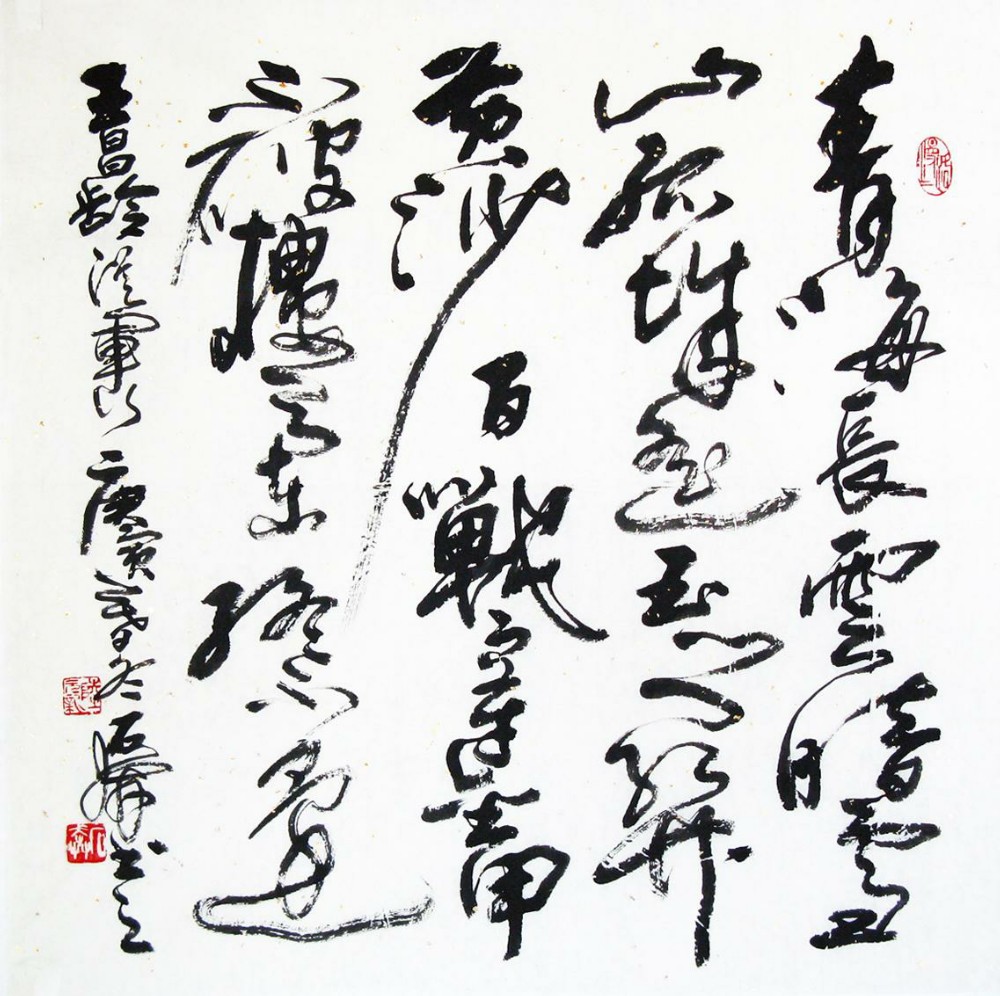 青海長雲暗雪
山孤城遥玉門關
黄沙百戰穿金甲
不破樓蘭終不還
王昌齡從軍行 庚寅暮冬 書之